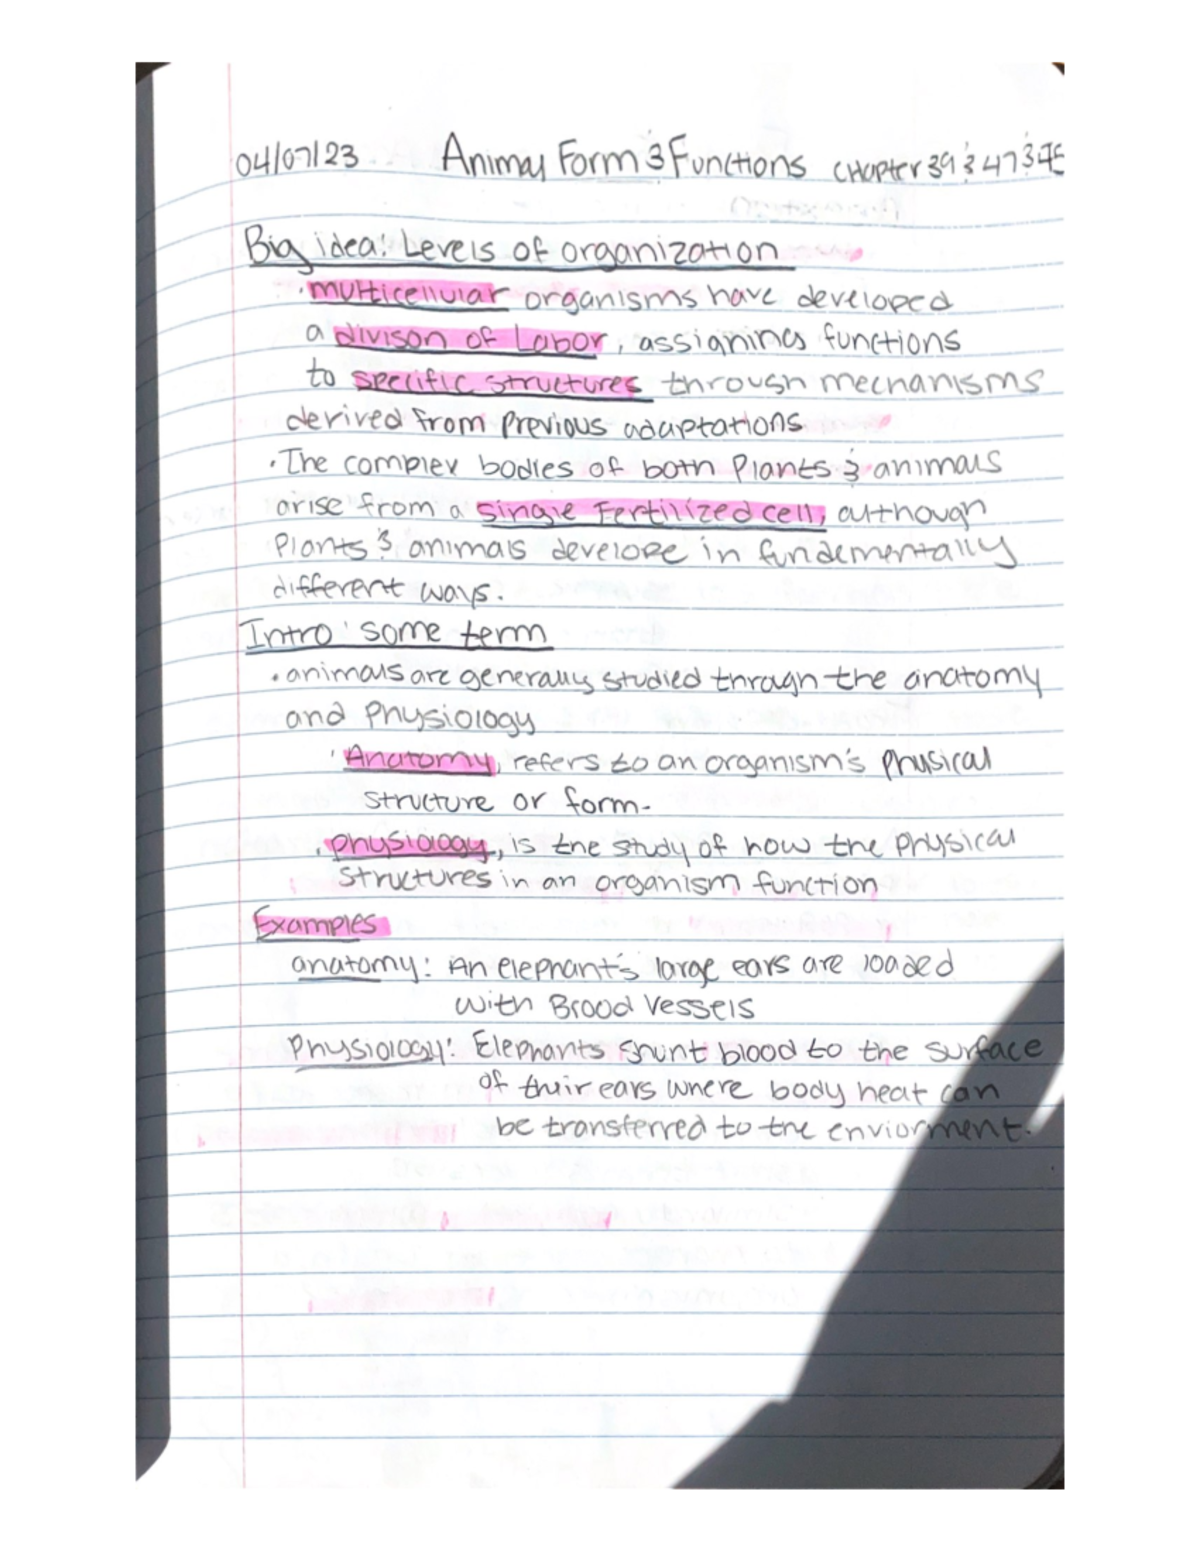 04/07/23 Animal Form & Functions Chapter 39 & 47 &
Big idea: Levels of organization
· multicellular organisms have developed
a divison of Labor, assigning functions
to specific structures through mechanisms
derived from previous adaptations
· The complex bodies of both Plants & animals
arise from a single Fertilized cell, although
Plants & animals develope in fundementally
different ways.
Intro: some term
· animals are generally studied through the anatomy
and Physiology
· Anatomy, refers to an organism's physical
structure or form.
· physiology, is the study of how the Physical
Structures in an organism function
Examples
anatomy: An elephant's large ears are loaded
with Blood Vessels
Physiology: Elephants shunt blood to the surface
of their ears where body heat can
be transferred to the enviorment.